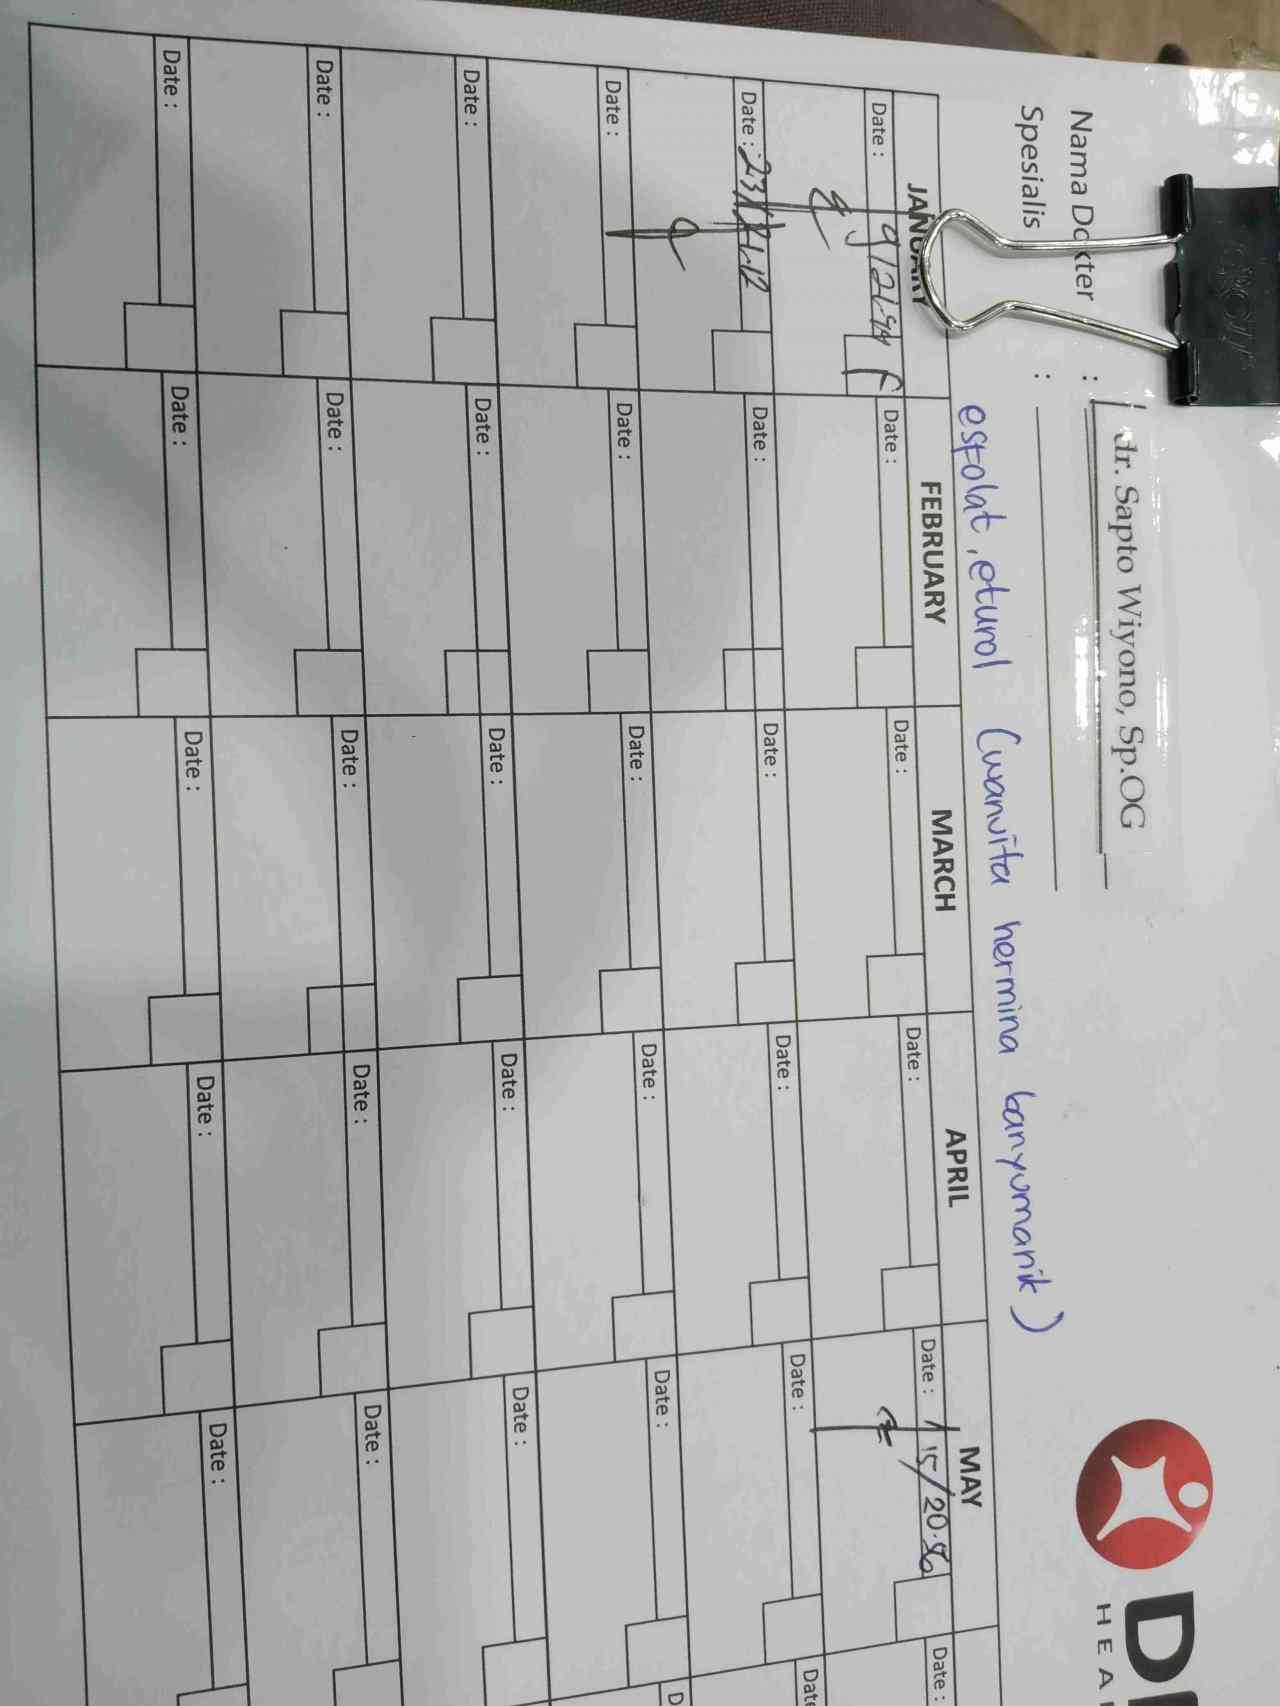 Nama Dokter : dr. Sapto Wiyono, Sp.OG
Spesialis :
HEA
esfolat, eturol (wanvita hermina banyumanik)
JANUARY FEBRUARY MARCH APRIL MAY
Date : Date : Date : Date : Date : 15/20.50 Date :
Date : 23 Date : Date : Date : Date : Date
Date : Date : Date : Date : Date : D
Date : Date : Date : Date : Date :
Date : Date : Date : Date : Date :
Date : Date : Date : Date : Date :